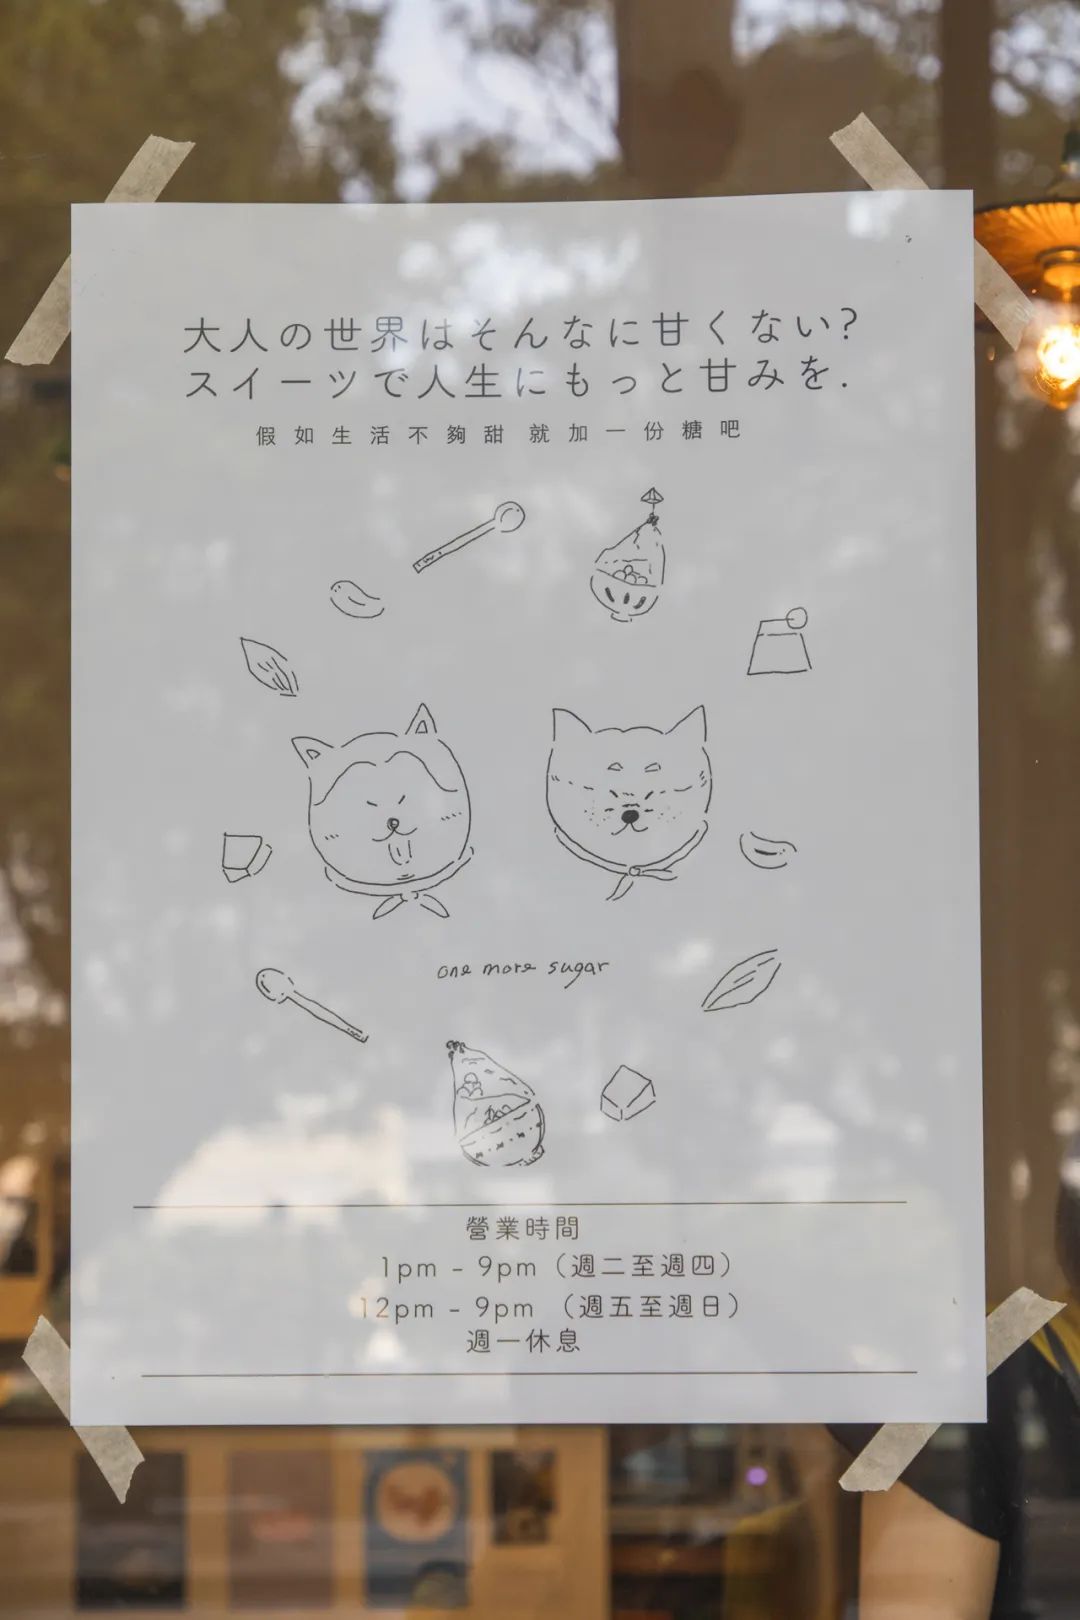 大人の世界はそんなに甘くない?
スイーツで人生にもっと甘みを.
假如生活不夠甜 就加一份糖吧
one more sugar
營業時間
1pm - 9pm（週二至週四）
12pm - 9pm （週五至週日）
週一休息